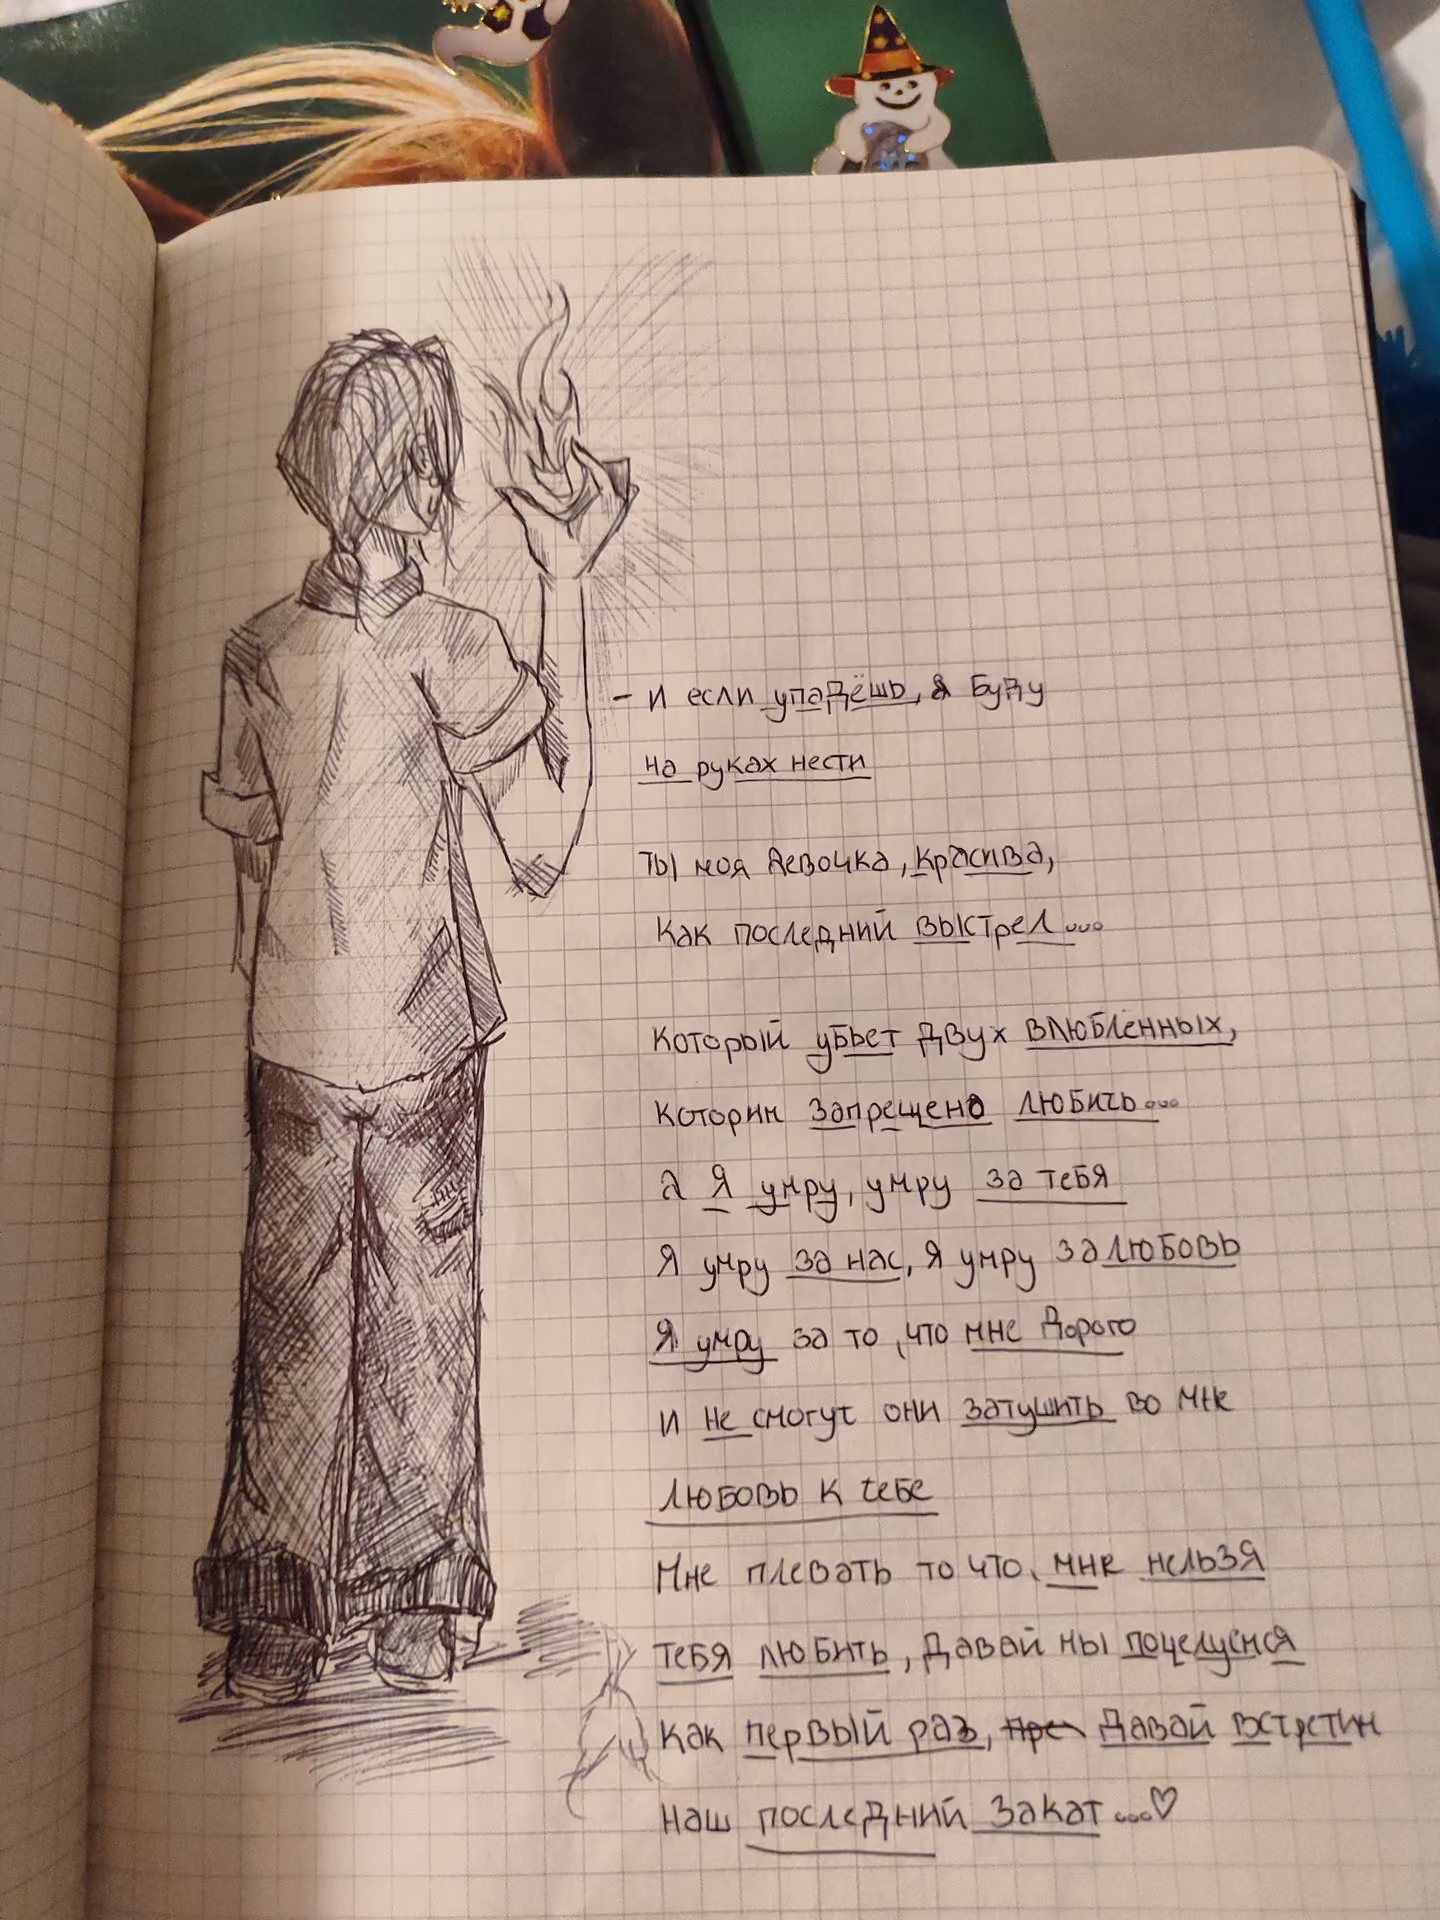 - И если упадёшь, я буду
на руках нести
Ты моя девочка, красива,
Как последний выстрел...
Который убьет двух влюблённых,
Которим запрещено любить...
а я умру, умру за тебя
Я умру за нас, я умру за любовь
Я умру за то, что мне дорого
и не смогут они затушить во мне
любовь к тебе
Мне плевать то что, мне нельзя
тебя любить, давай мы поцелуемся
Как первый раз, давай встретим
Наш последний закат...♡